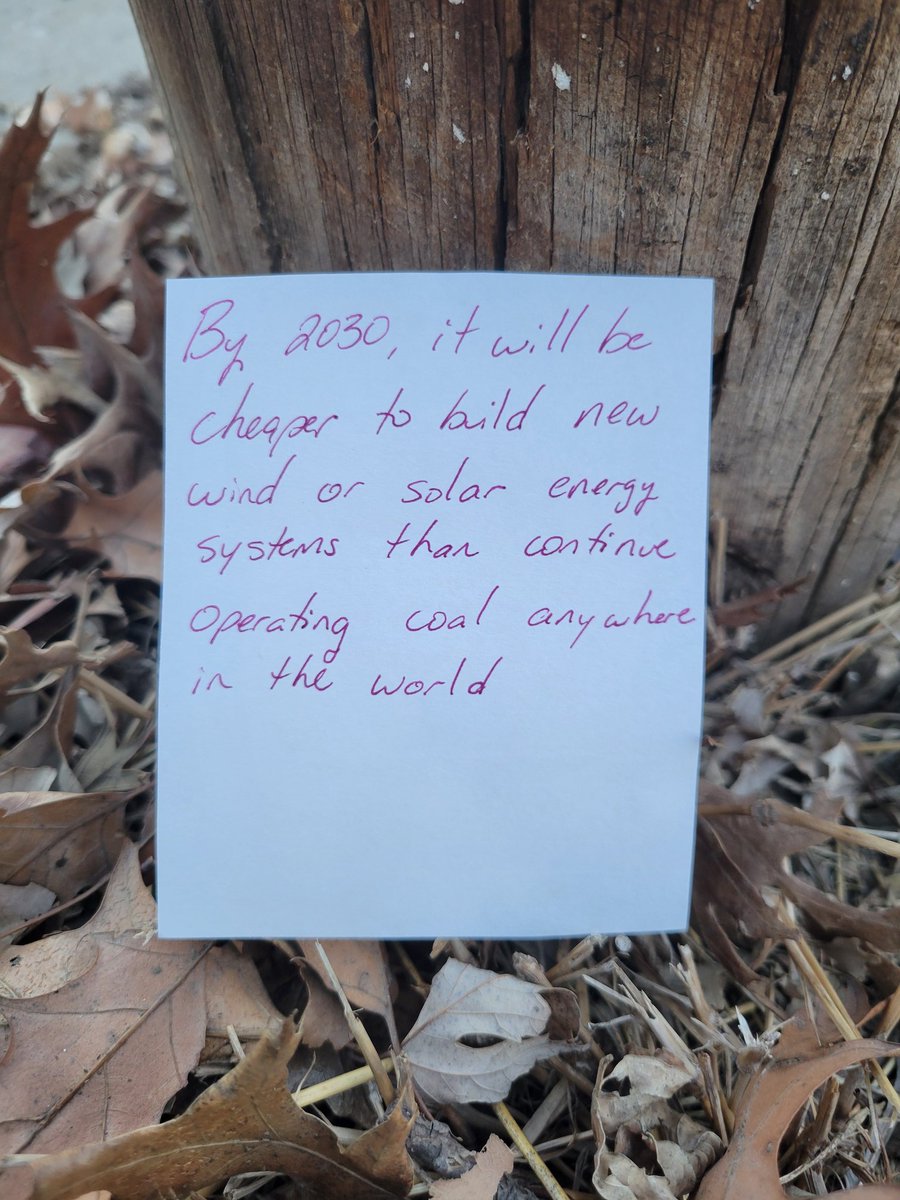 By 2030, it will be
cheaper to build new
wind or solar energy
systems than continue
operating coal anywhere
in the world